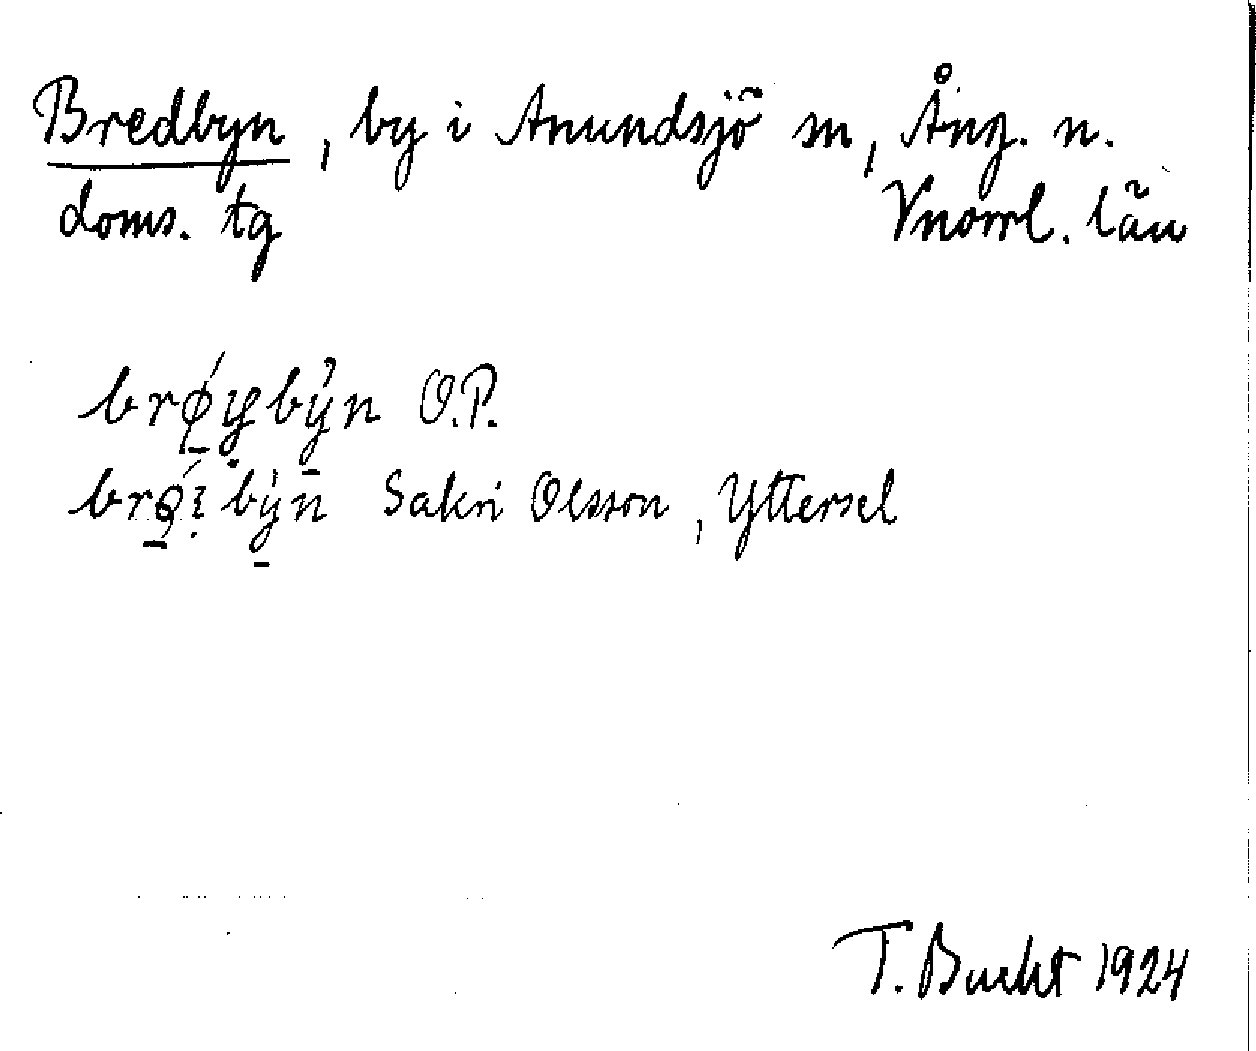 Bredbyn, by i Anundsjö sn, Ång. n.
doms. tg Vnorrl. län
brǿ̱y̜bȳn O.P.
brǫ́ı̣bỳ̱n Sakri Olsson, Yttersel
T. Bucht 1924